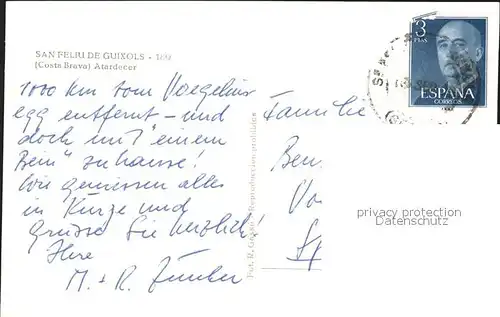 SAN FELIU DE GUIXOLS - 109
(Costa Brava) Atardecer
1000 km vom Voegelins
egg entfernt - und
doch mit "einem
Bein" zuhause!
Wir geniessen alles
in Kürze und
grüsse Sie herzlich!
Ihre
M. + R. Zunker
Fot. R. Reproduccion prohibida
3
PTAS
ESPAÑA
CORREOS
Familie
Ben
Vo
privacy protection
Datenschutz